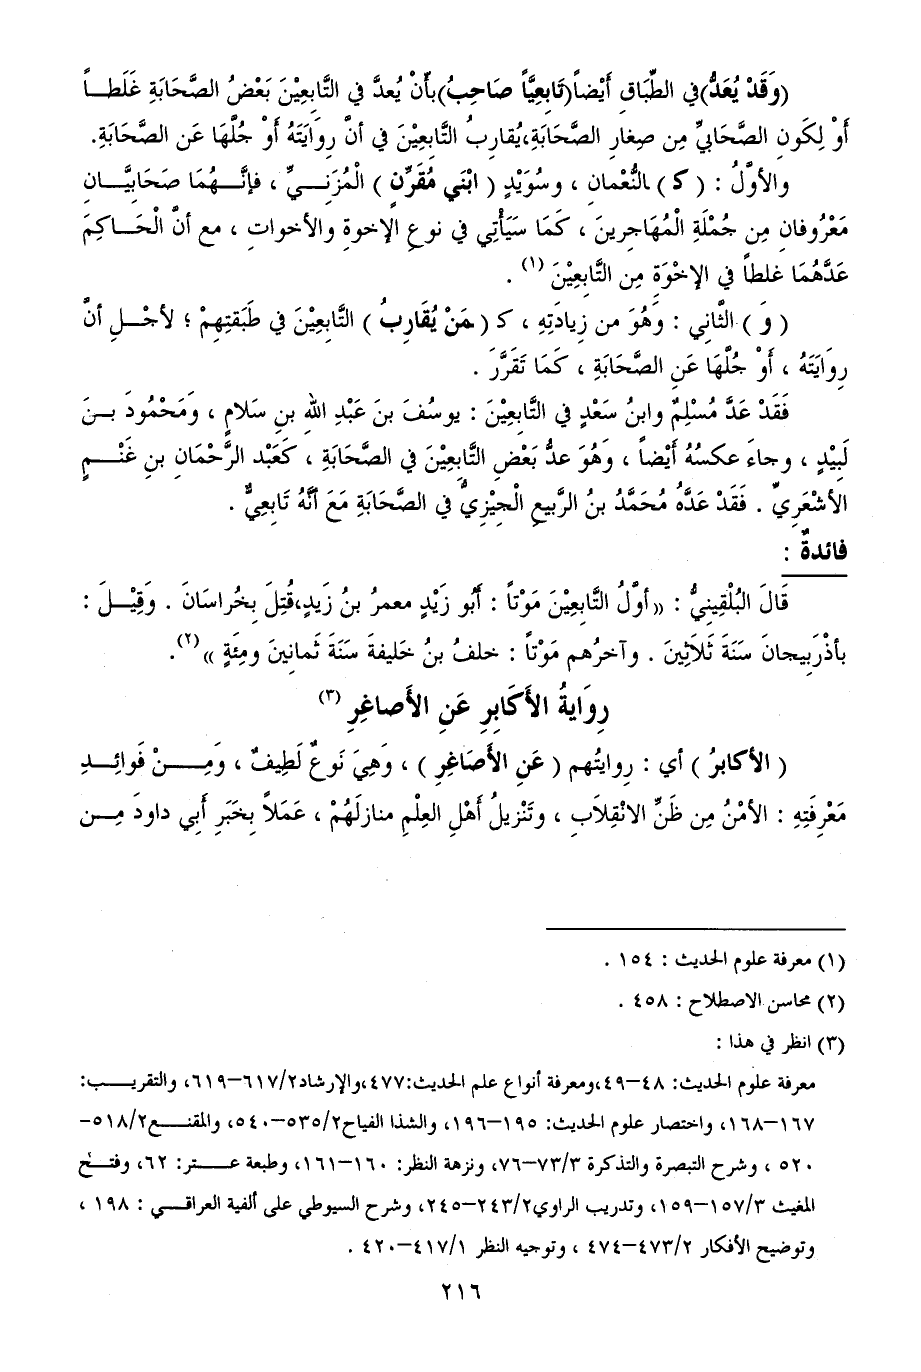 (وَقَدْ يُعَدُّ) في الطِّبَاقِ أَيْضاً (تَابِعِيَّاً صَاحِبُ) بأَنْ يُعدَّ في التَّابِعِيْنَ بَعْضُ الصَّحَابَةِ غَلَطاً
أَوْ لِكَونِ الصَّحَابيِّ مِن صِغَارِ الصَّحَابَةِ، يُقاربُ التَّابِعيْنَ في أنَّ رِوَايَتَهُ أَوْ جُلَّهَا عَنِ الصَّحَابَةِ.
والأوَّلُ : ( كـ ) النُّعْمانِ ، وسُوَيْدٍ ( ابْنَي مُقَرِّنِ ) الْمُزَنيِّ ، فإنَّهُمَا صَحَابيَّانِ
مَعْرُوفانِ مِن جُمْلَةِ الْمُهَاجرينَ ، كَمَا سَيَأْتِي في نوعِ الإخوةِ والأخواتِ ، مع أنَّ الْحَاكِمَ
عَدَّهُمَا غلطاً في الإخْوَةِ مِن التَّابِعِيْنَ (١) .
( وَ ) الثَّاني : وَهُوَ من زيادَتِهِ ، كـ ( مَنْ يُقَارِبُ ) التَّابِعِيْنَ في طَبَقتِهِمْ ؛ لأجْلِ أنَّ
روَايَتَهُ ، أَوْ جُلَّهَا عَنِ الصَّحَابَةِ ، كَمَا تَقَرَّرَ .
فَقَدْ عَدَّ مُسْلِمٌ وابنُ سَعْدٍ في التَّابِعِيْنَ : يوسُفَ بنَ عَبْدِ اللهِ بنِ سَلامٍ ، وَمَحْمُودَ بنَ
لَبِيْدٍ ، وجاءَ عكسُهُ أَيْضاً ، وَهُوَ عدُّ بَعْضِ التَّابِعِيْنَ في الصَّحَابَةِ ، كَعَبْدِ الرَّحْمَانِ بنِ غَنْمٍ
الأشْعَرِيِّ . فَقَدْ عَدَّهُ مُحَمَّدُ بنُ الرَّبيعِ الْجِيْزِيُّ في الصَّحَابَةِ مَعَ أنَّهُ تَابِعيٌّ .
فائدةٌ :
قَالَ البُلْقِينيُّ : « أوَّلُ التَّابِعِيْنَ مَوْتاً : أَبُو زَيْدٍ معمرُ بنُ زَيدٍ، قُتِلَ بِخُراسَانَ . وقِيْلَ :
بأذْرَبِيجانَ سَنَةَ ثَلاَثِيْنَ . وآخرُهم مَوْتاً : خلفُ بنُ خَليفةَ سَنَةَ ثَمانينَ ومِئَةٍ »(٢).
رِوَايةُ الأَكَابِرِ عَنِ الأَصاغِرِ (٣)
( الأكابرُ ) أي : روايتُهم ( عَنِ الأَصَاغِرِ ) ، وَهِيَ نَوعٌ لَطِيفٌ ، وَمِنْ فَوائِدِ
مَعْرِفَتِهِ : الأمْنُ مِن ظَنِّ الانْقِلاَبِ ، وتَنْزِيلُ أَهْلِ العِلْمِ منازلَهُمْ ، عَمَلاً بِخَبَرِ أبي داودَ مِن
(١) معرفة علوم الحديث : ١٥٤ .
(٢) محاسن الاصطلاح : ٤٥٨ .
(٣) انظر في هذا :
معرفة علوم الحديث: ٤٨-٤٩، ومعرفة أنواع علم الحديث: ٤٧٧، والإرشاد ٦١٧/٢-٦١٩، والتقريب:
١٦٧-١٦٨، واختصار علوم الحديث: ١٩٥-١٩٦، والشذا الفياح ٥٣٥/٢-٥٤٠، والمقنع ٥١٨/٢-
٥٢٠ ، وشرح التبصرة والتذكرة ٧٣/٣-٧٦، ونزهة النظر: ١٦٠-١٦١، وطبعة عتر: ٦٢، وفتح
المغيث ١٥٧/٣-١٥٩، وتدريب الراوي ٢٤٣/٢-٢٤٥، وشرح السيوطي على ألفية العراقي : ١٩٨ ،
وتوضيح الأفكار ٤٧٣/٢-٤٧٤ ، وتوجيه النظر ٤١٧/١-٤٢٠ .
٢١٦